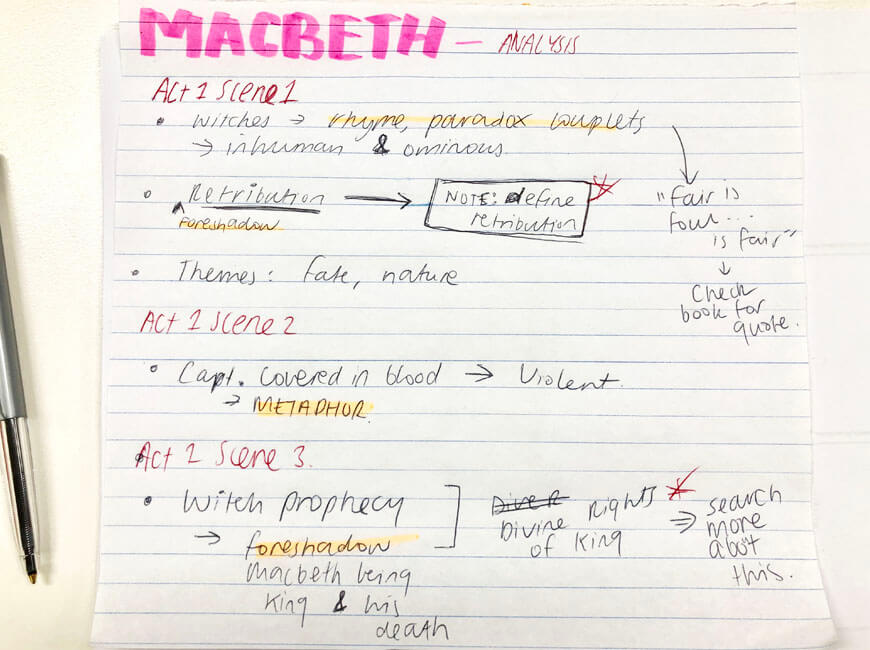 MACBETH - ANALYSIS
Act 1 Scene 1
• Witches → rhyme, paradox couplets
→ inhuman & ominous.
• Retribution → NOTE: define
retribution
^ Foreshadow
"fair is
foul...
is fair"
↓
Check
book for
quote.
• Themes: fate, nature
Act 1 Scene 2
• Capt. covered in blood → Violent.
→ METAPHOR.
Act 1 Scene 3.
• Witch prophecy
→ foreshadow
Macbeth being
King & his
death
Divine Rights
of King
⇒ search
more
abot
this.